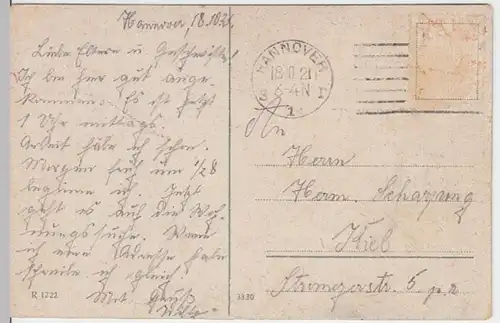 Hannover, 18.10.21.
Liebe Eltern u. Geschwister!
Ich bin hier gut ange-
kommen. Es ist jetzt
1 Uhr mittags.
Arbeit habe ich schon.
Morgen früh um 1/28
beginne ich. Jetzt
geht es auf die Woh-
nungssuche. Wenn
ich eine Adresse habe
schreibe ich gleich.
Mit Gruß
R 1722
HANNOVER
18.10.21
3 6-4N
1
An
Herrn
Herm.
Kiel
5 p. r.
3830